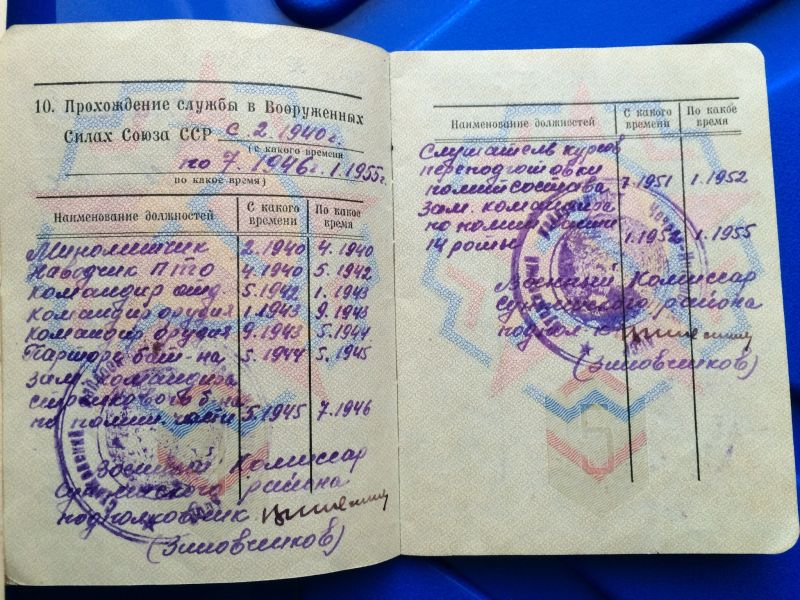 10. Прохождение службы в Вооруженных
Силах Союза ССР с 2.1940г.
(с какого времени
по 7 1946г. 1.1955г.
по какое время)
Наименование должностей С какого времени По какое время
Минометчик 2.1940 4.1940
наводчик ПТО 4.1940 5.1942
командир отд. 5.1942 1.1943
командир орудия 1.1943 9.1943
командир орудия 9.1943 5.1944
Парторг бат-на 5.1944 5.1945
Зам. командира
стрелкового б-на
по полит. части 5.1945 7.1946
Военный Комиссар
района
подполковник
(Зиновчиков)
Наименование должностей С какого времени По какое время
Слушатель курсов
переподготовки
политсостава 7.1951 1.1952
Зам. командира
по полит. части
14 роты 1.1952 1.1955
Военный Комиссар
района
подпол-к
(Зиновчиков)